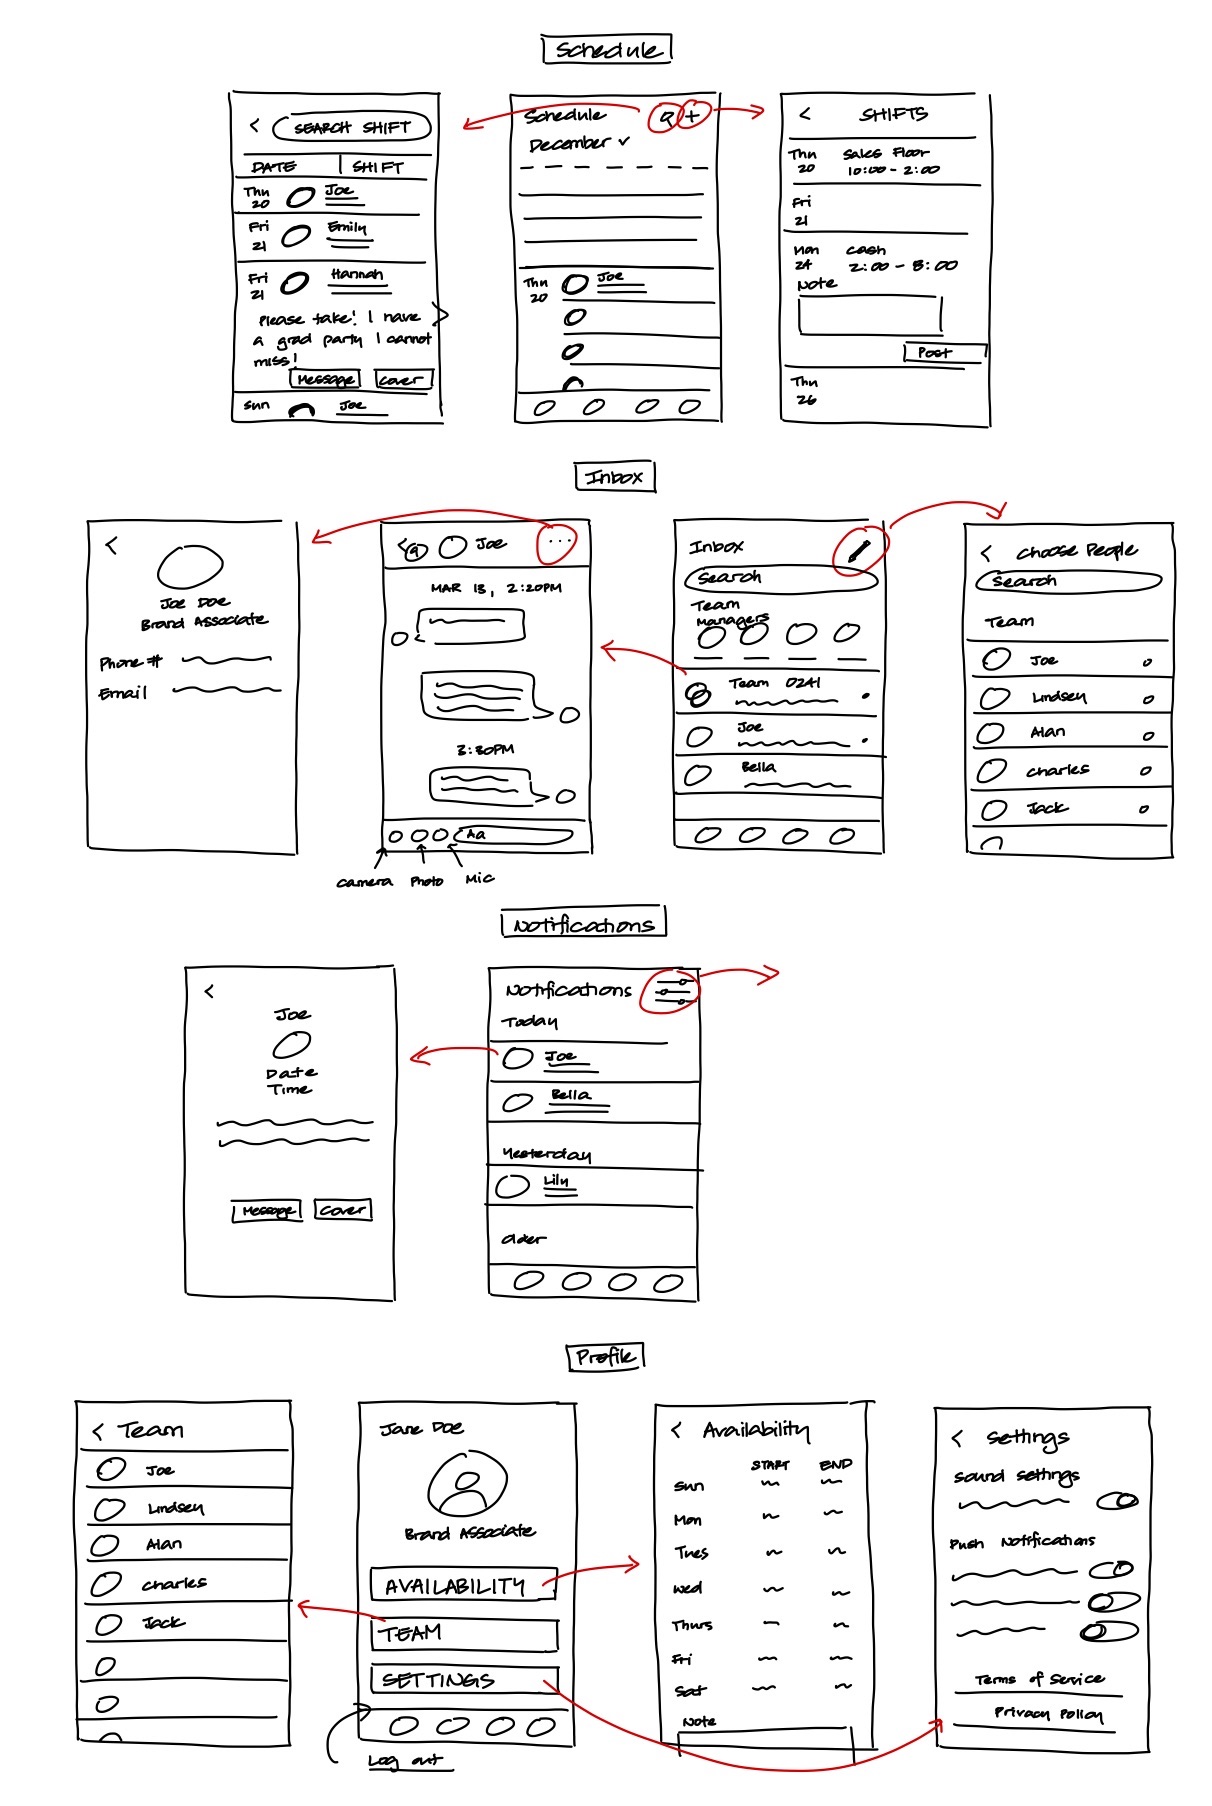 Schedule
<
SEARCH SHIFT
DATE SHIFT
Thu
20
Joe
Fri
21
Emily
Fri
21
Hannah
Please take! I have
a grad party I cannot
miss!
Message Cover
Sun
Joe
Schedule +
December
Thu
20
Joe
< SHIFTS
Thu
20
Sales Floor
10:00 - 2:00
Fri
21
Mon
24
Cash
2:00 - 8:00
Note
Post
Thu
26
Inbox
<
Joe Doe
Brand Associate
Phone #
Email
< Joe ...
MAR 13, 2:20PM
3:30PM
Aa
Camera Photo Mic
Inbox
Search
Team
Managers
Team 0241
Joe
Bella
< Choose People
Search
Team
Joe
Lindsey
Alan
Charles
Jack
Notifications
<
Joe
Date
Time
Message Cover
Notifications
Today
Joe
Bella
Yesterday
Lily
Older
Profile
< Team
Joe
Lindsey
Alan
Charles
Jack
Jane Doe
Brand Associate
AVAILABILITY
TEAM
SETTINGS
Log out
< Availability
START END
Sun
Mon
Tues
Wed
Thurs
Fri
Sat
Note
< Settings
Sound Settings
Push Notifications
Terms of Service
Privacy Policy